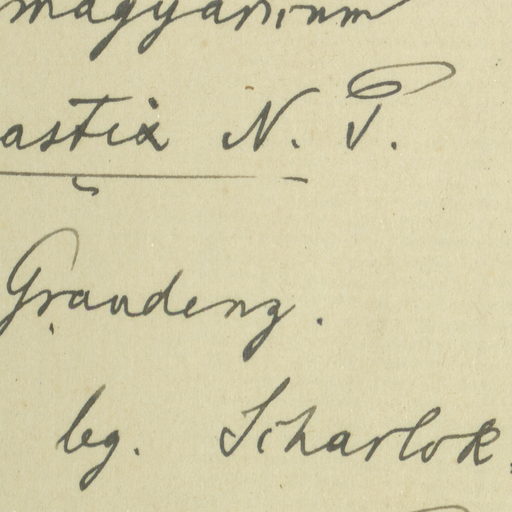 magyaricum
astix N. P.
Graudenz.
leg. Scharlok.